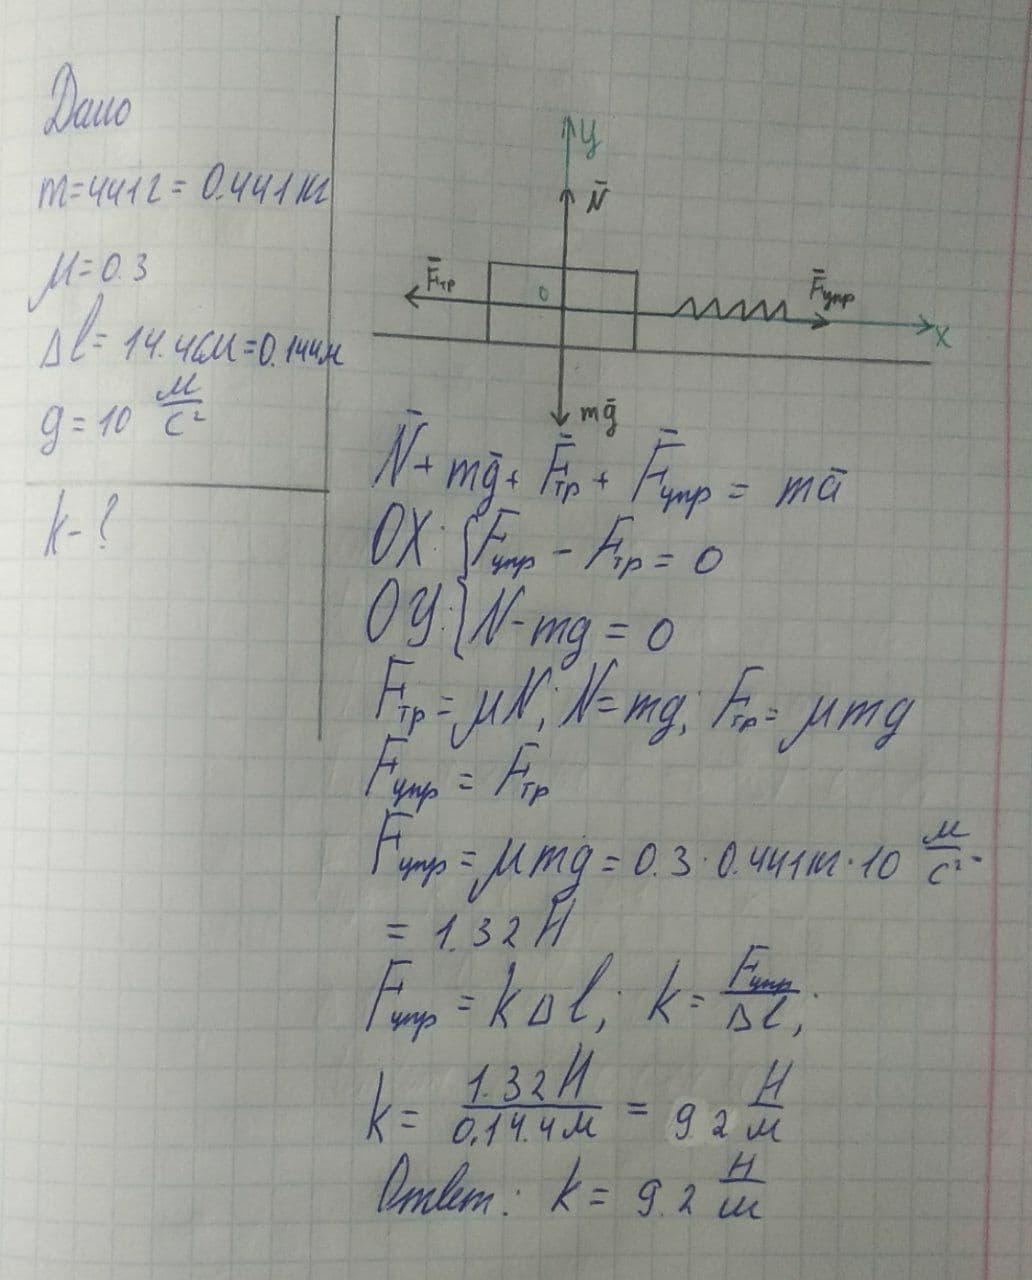 Дано
m=441г= 0.441кг
μ=0.3
Δl= 14.4см=0.144м
g=10 м/с²
k-?
y
N̄
F̄тр
0
F̄упр
x
mḡ
N̄+ mḡ+ F̄тр+ F̄упр= mā
OX: {Fупр - Fтр= 0
OY: {N-mg= 0
Fтр=μN; N=mg; Fтр= μmg
Fупр= Fтр
Fупр=μmg=0.3·0.441кг·10 м/с²=
= 1.32Н
Fупр=kΔl; k= Fупр/Δl;
k= 1.32Н/0,14.4м = 9.2 Н/м
Ответ: k= 9.2 Н/м